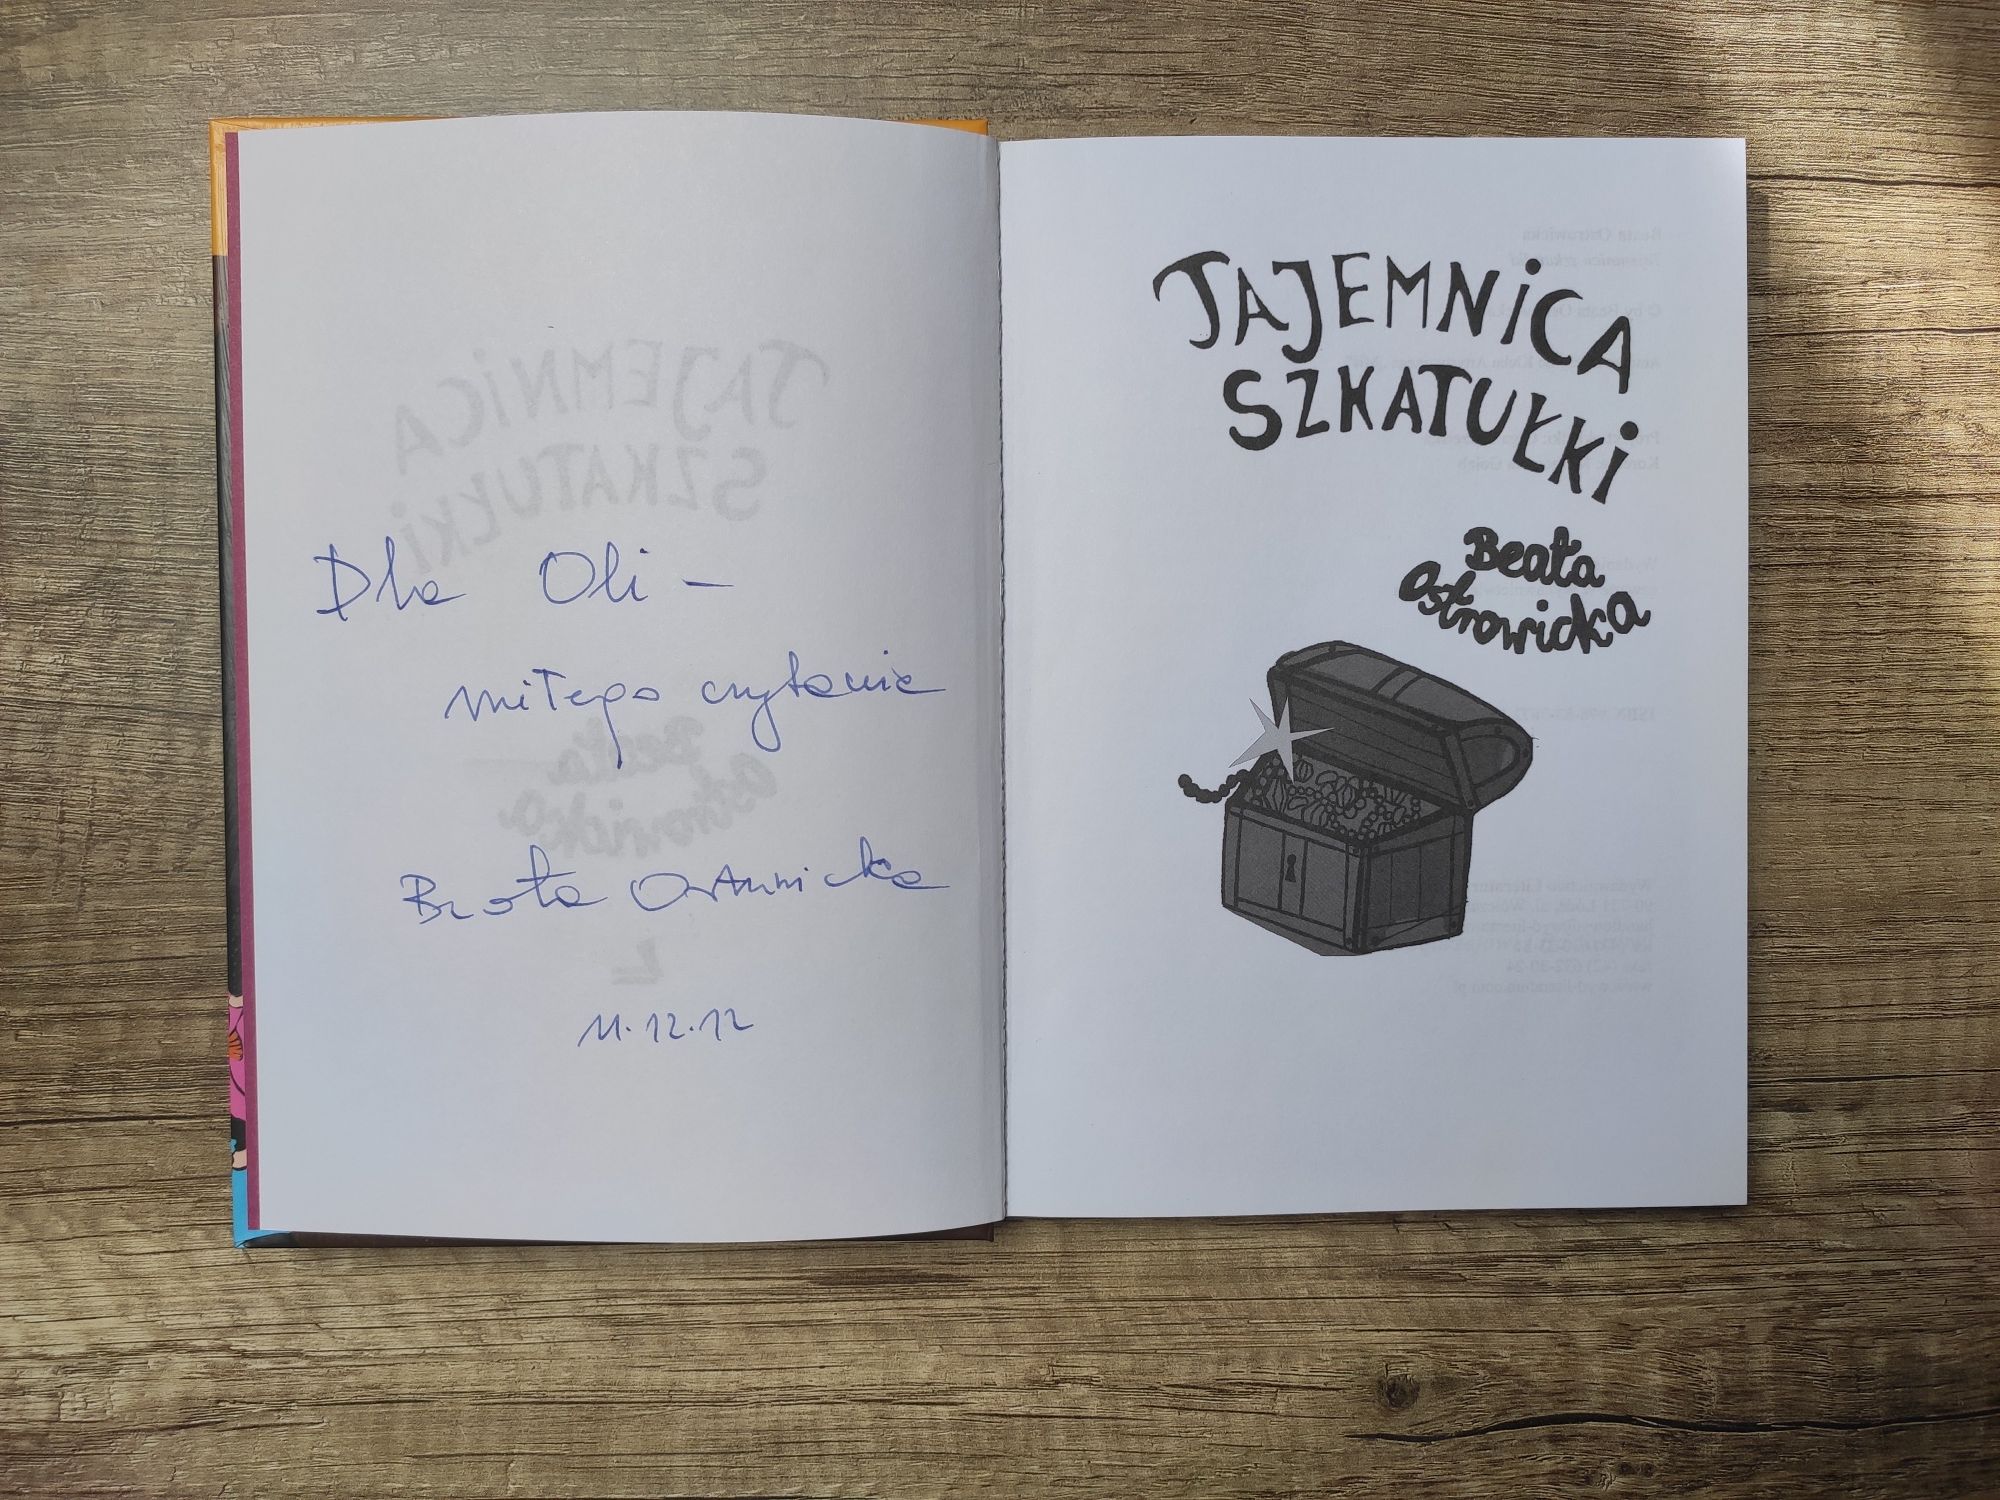 Dla Oli –
miłego czytania
Beata Ostrowicka
11.12.12
TAJEMNiCA
SZKATUŁKi
Beata
Ostrowicka